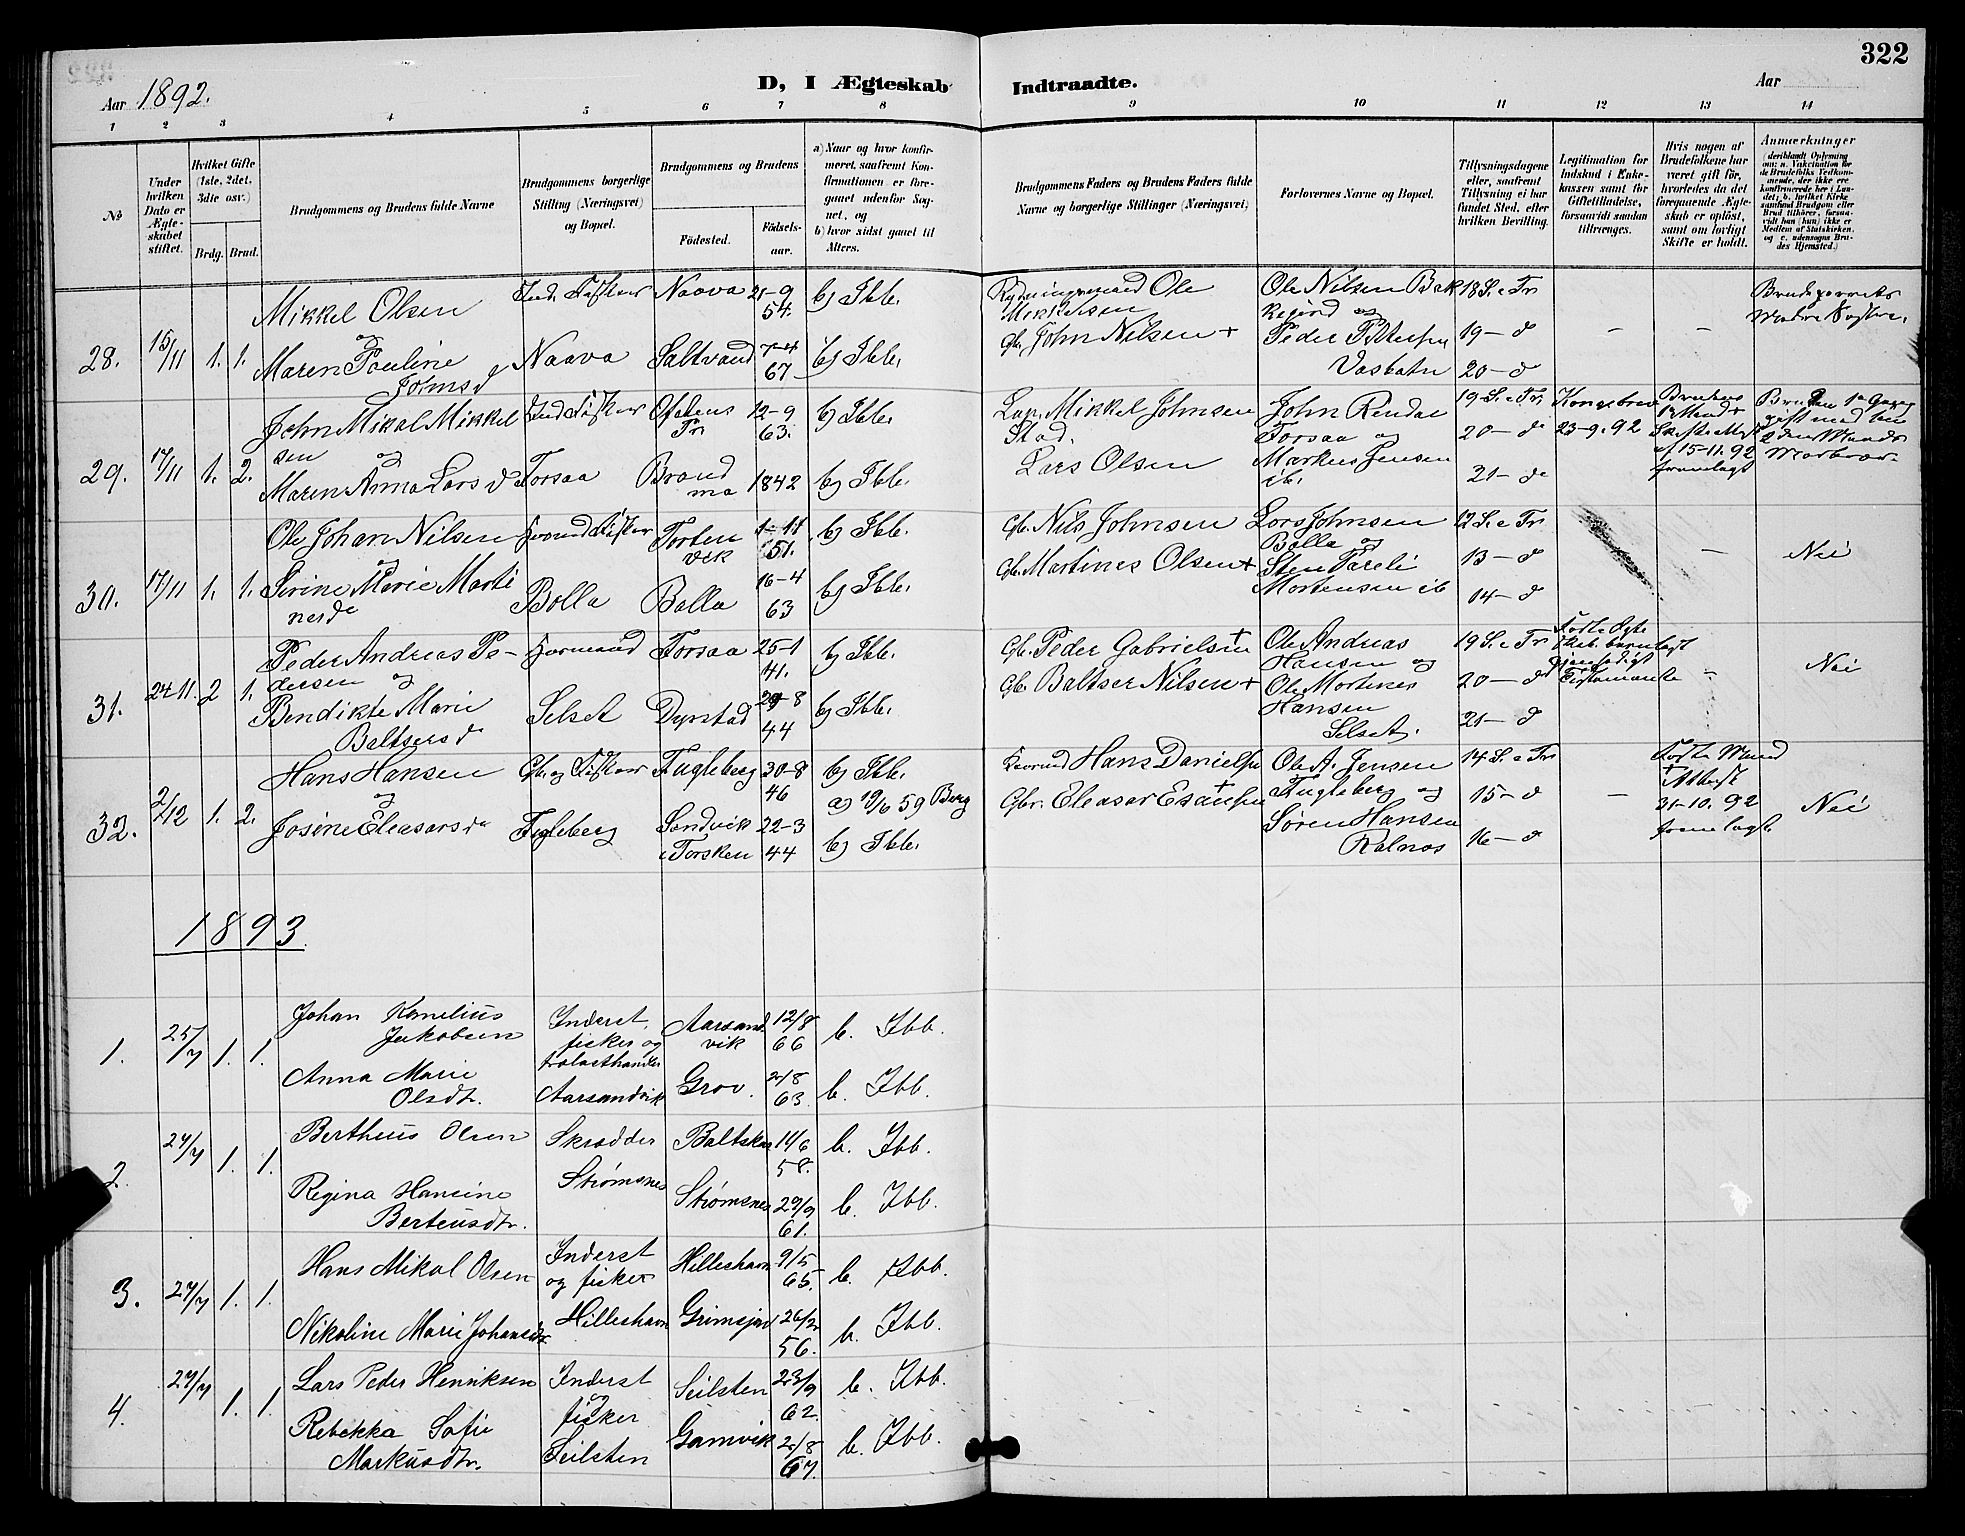 322
Aar 1892.
D, I Ægteskab
Indtraadte.
Aar
1 2 3 4 5 6 7 8 9 10 11 12 13 14
№
Under hvilken Dato er Ægteskabet stiftet.
Hvilket Gifte (1ste, 2det, 3die osv.)
Brdg. Brud.
Brudgommens og Brudens fulde Navne
Brudgommens borgerlige Stilling (Næringsvei) og Bopæl.
Brudgommens og Brudens
Fødested.
Fødselsaar.
a) Naar og hvor konfirmeret, saafremt Konfirmationen er foregaaet udenfor Sognet, og
b) hvor sidst gaaet til Alters.
Brudgommens Faders og Brudens Faders fulde Navne og borgerlige Stillinger (Næringsvei)
Forlovernes Navne og Bopæl.
Tillysningsdagene eller, saafremt Tillysning ei har fundet Sted, efter hvilken Bevilling.
Legitimation for Indskud i Enkekassen samt for Giftetilladelse, forsaavidt saadan tiltrænges.
Hvis nogen af Brudefolkene har været gift før, hvorledes da det foregaaende Ægteskab er opløst, samt om lovligt Skifte er holdt.
Anmærkninger
28. 15/11 1. 1.
Mikkel Olsen
og
Maren Pauline
Johnsd
Ind. Fisker
Naava
Naava 21-9 54. b) Ibb.
Saltvand 7-4 67 b) Ibb.
Rydningsmand Ole
Mikkelsen
Gb. John Nilsen +
Ole Nilsen Bak
og
Peder Petersen
18 S. e Tr
19 - d
20 - d
–
–
29. 17/11 1. 2.
John Mikal Mikkel
sen
og
Maren Anna Larsd
Ind Fisker
Forsaa
Ofotens
Pr. 12-9 63. b) Ibb.
1842 b) Ibb.
Lap. Mikkel Johnsen
Stad.
Lars Olsen
John Rendal
Forsaa og
Markus Jensen
ib.
19 S. e Tr.
20 - d
21 - d
Kongebrev
23-9.92
Brudens
1ste Mand +
15-11.92
fremlagt
30. 17/11 1. 1.
Ole Johan Nilsen
og
Sirine Marie Marti
nesd
Bolla
Forten
vik 1-11 51. b) Ibb.
Bolla 16-4 63 b) Ibb.
Gb. Nils Johnsen
Gb. Martines Olsen +
Lars Johnsen
Bolla og
Mortensen ib
12 S. e Tr.
13 - d
14 - d
–
Nei
31. 24 11. 2 1.
Peder Andreas Pe-
dersen og
Bendikte Marie
Baltsersd
Selset
Forsaa 25-1 41. b) Ibb.
Dyrstad 29-8 44 b) Ibb.
Gb. Peder Gabrielsen +
Gb. Baltser Nilsen +
Ole Andreas
Hansen og
Ole Mortines
Hansen
Selset.
19 S. e Tr
20 - d
21 - d
–
Nei
32. 2/12 1. 2.
Hans Hansen
og
Josine Eleasarsd
Gb. og Fisker
Fugleberg
Fugleberg 30-8 46 b) Ibb.
Sandvik
i Torsken 22-3 44 a) 19/6 59 Berg
b) Ibb.
Hans Danielsen
Gbr. Eleasar Esausen +
Ole A. Jensen
Fugleberg og
Søren Hansen
14 S. e Tr
15 - d
16 - d
–
Første Mand
+
Attest
31-10.92
fremlagt
Nei
1893.
1. 25/7 1. 1.
Johan Kornelius
Jakobsen
Anna Marie
Olsdtr.
Inderst,
fisker og
trælasthandler
Aarsandvik
Aarsand
vik 12/8 66 b. Ibb.
Grov. 2/8 63. b. Ibb.
2. 27/7 1. 1.
Bertheus Olsen
Regina Hansine
Berteusdtr.
Skrædder
Strømsnes
Baltskar 14/6 58. b. Ibb.
Strømsnes 29/9 61. b. Ibb.
3. 27/7 1. 1.
Hans Mikal Olsen
Nikoline Marie Johansdtr
Inderst
og fisker
Hilleshavn
Hilleshavn 9/5 65. b. Ibb.
26/2 56. b. Ibb.
4. 27/7 1. 1.
Lars Peder Henriksen
Rebekka Sofie
Markusdtr.
Inderst
og
fisker
Seilsten
Seilsten 23/9 62. b. Ibb.
Gamvik 2/8 67. b. Ibb.